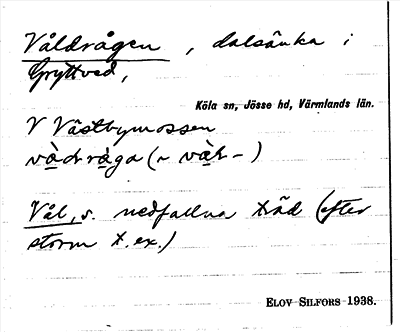 Våldrågen, dalsänka i
Gryttved,
Köla sn, Jösse hd, Värmlands län.
V Västbymossen
vàdråga (~ vàl- )
Vål, s. nedfallna träd (efter
storm t. ex.)
ELOV SILFORS 1938.